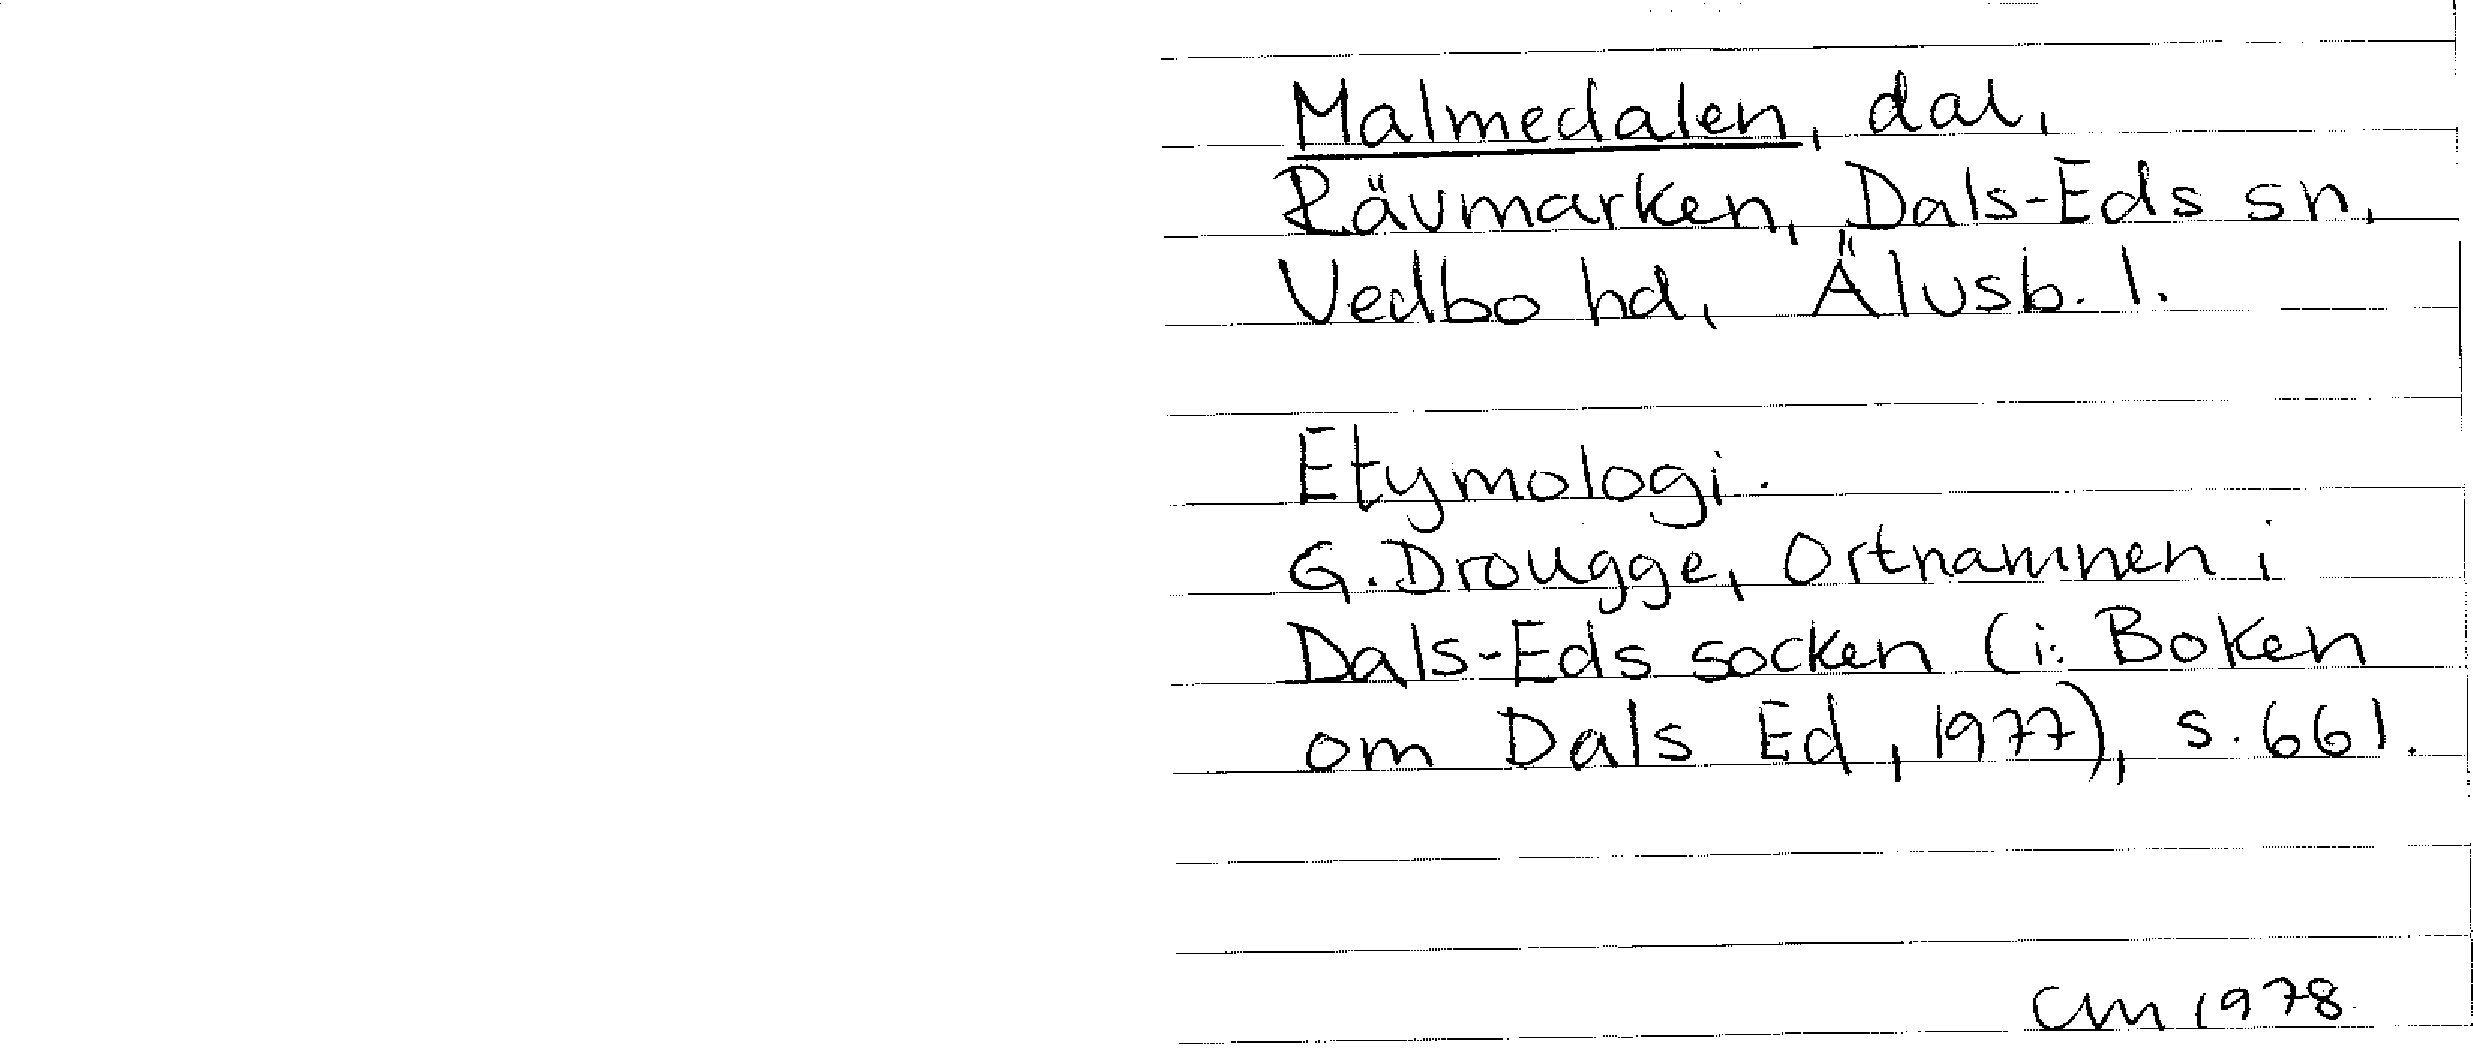 Malmedalen, dal,
Rävmarken, Dals-Eds sn,
Vedbo hd, Älvsb. l.
Etymologi.
G. Drougge, Ortnamnen i
Dals-Eds socken (i: Boken
om Dals Ed, 1977), s. 661.
CM 1978